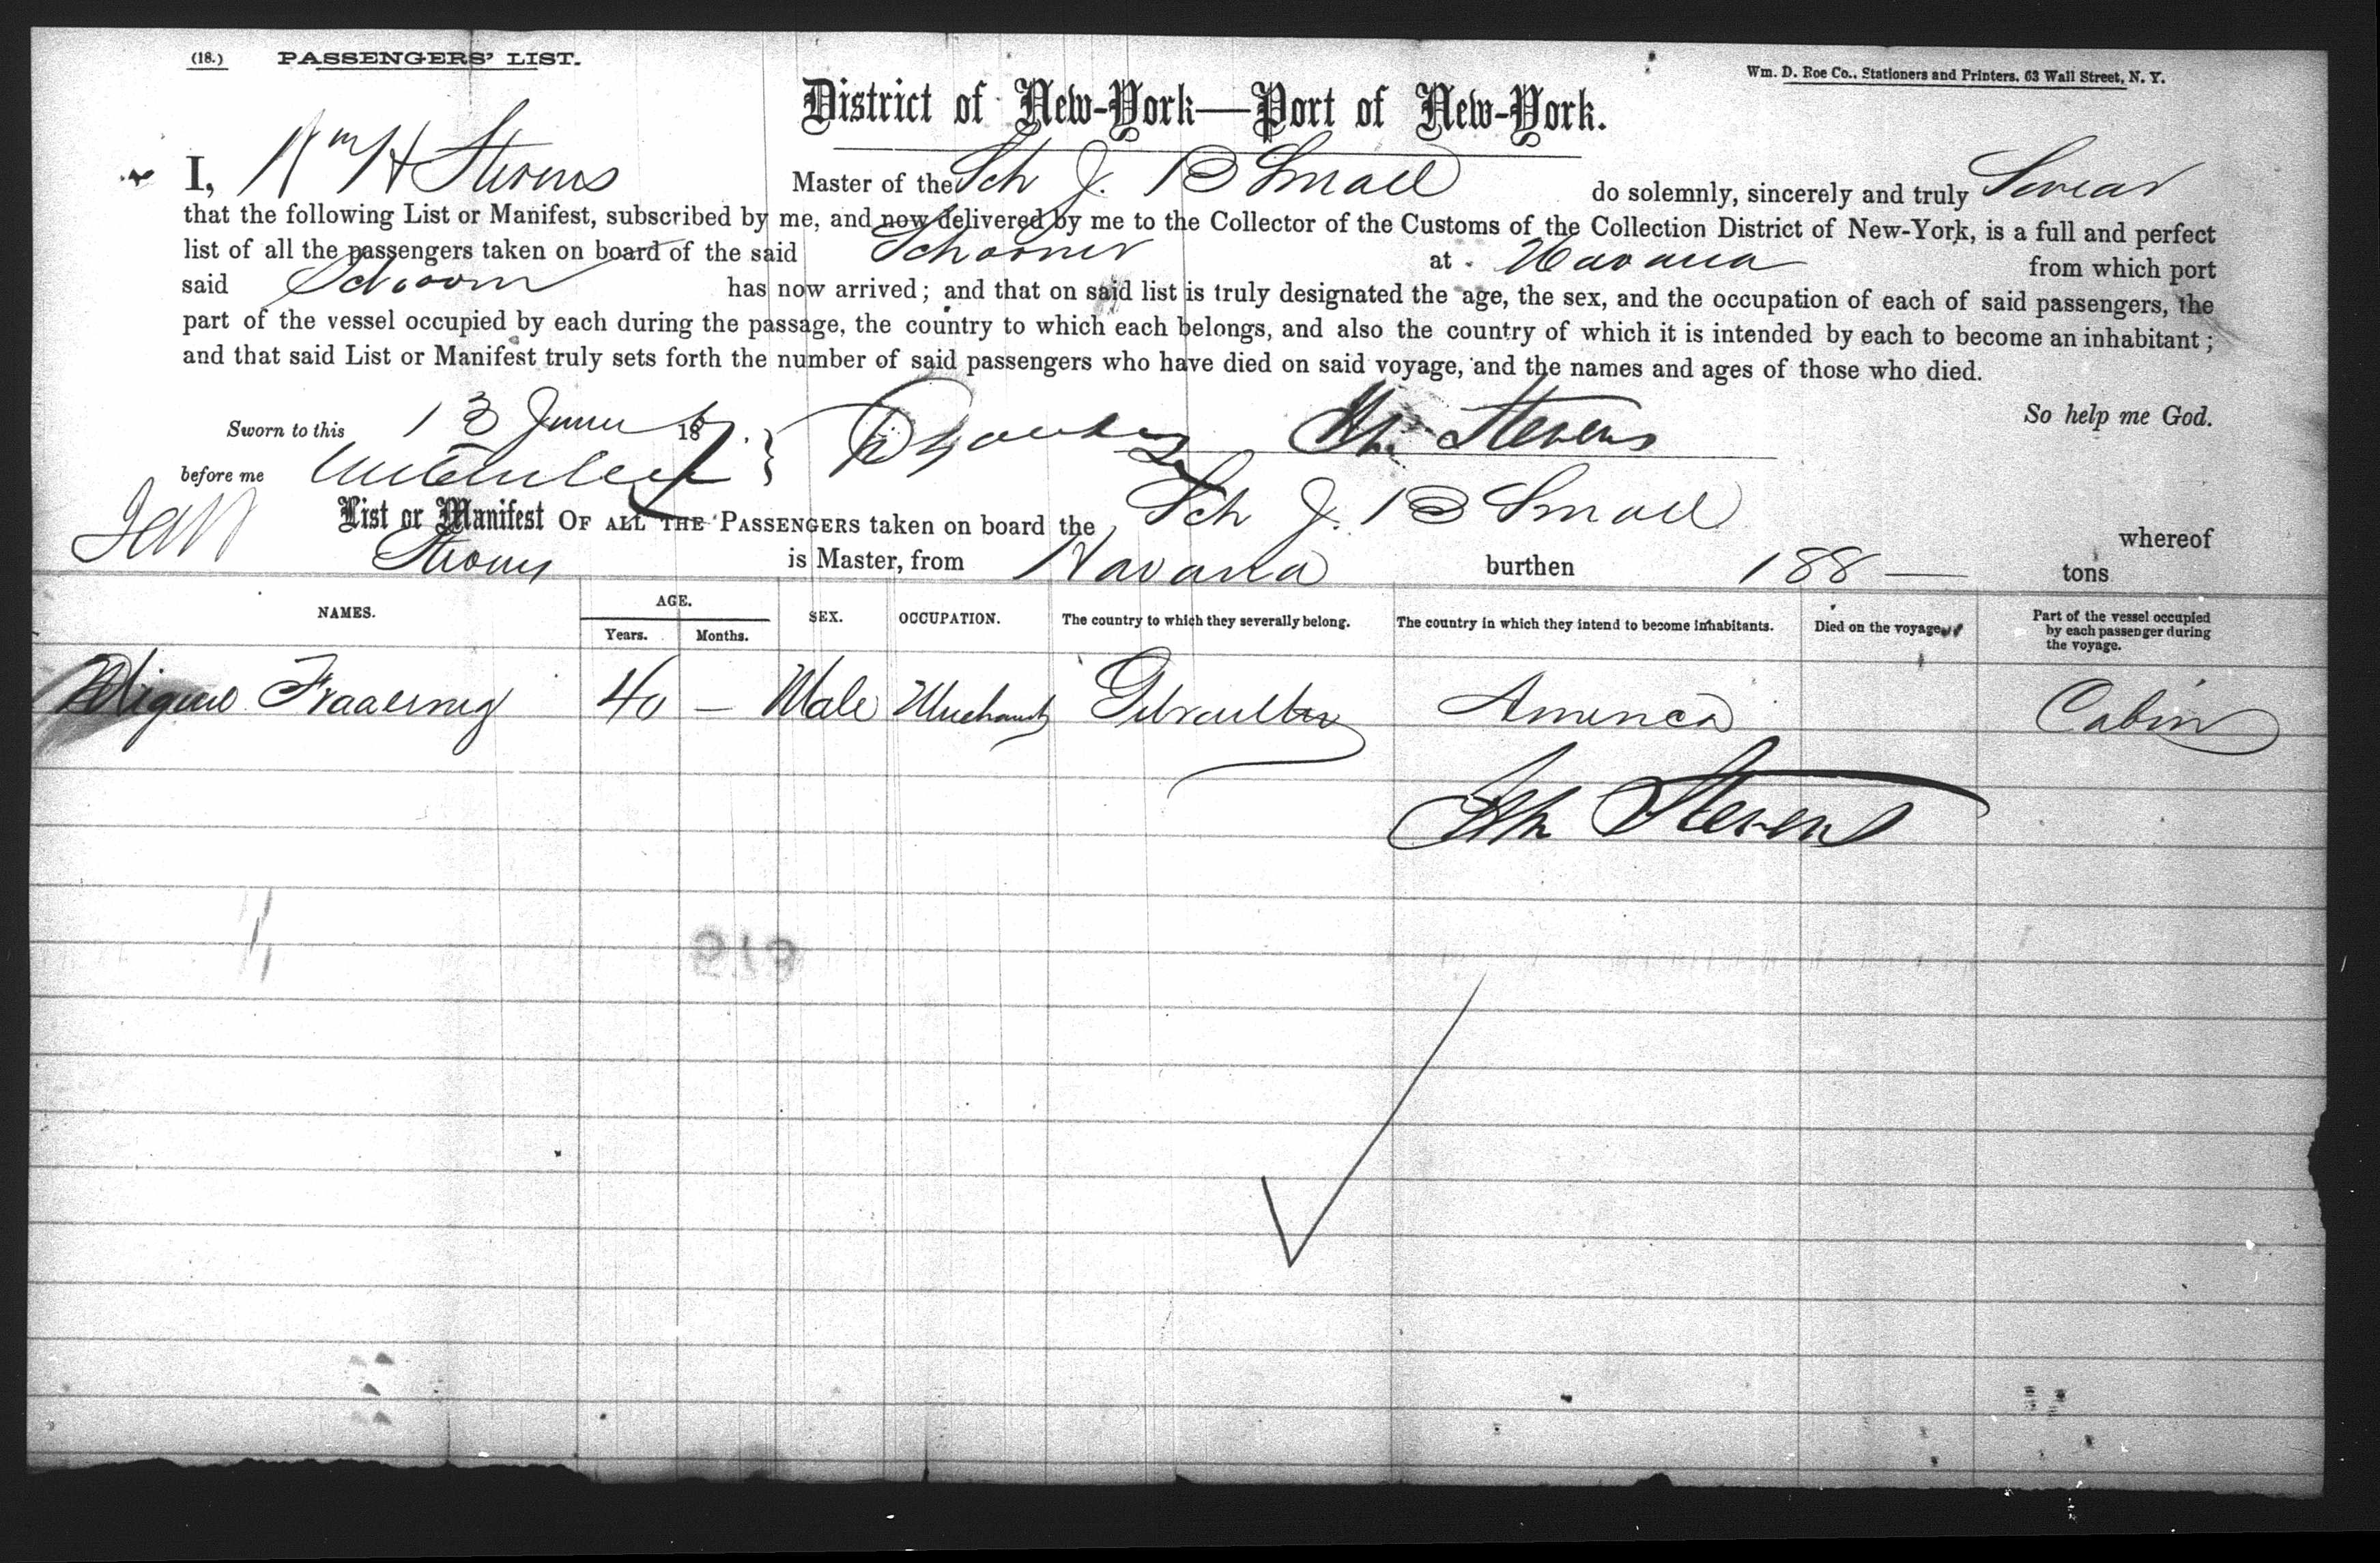 (18.) PASSENGERS' LIST.
Wm. D. Roe Co., Stationers and Printers, 63 Wall Street, N. Y.
District of New-York—Port of New-York.
I, Wm H Stevens Master of the Sch J. B Small do solemnly, sincerely and truly Swear
that the following List or Manifest, subscribed by me, and now delivered by me to the Collector of the Customs of the Collection District of New-York, is a full and perfect
list of all the passengers taken on board of the said Schooner at Havana from which port
said Schoonr has now arrived; and that on said list is truly designated the age, the sex, and the occupation of each of said passengers, the
part of the vessel occupied by each during the passage, the country to which each belongs, and also the country of which it is intended by each to become an inhabitant;
and that said List or Manifest truly sets forth the number of said passengers who have died on said voyage, and the names and ages of those who died.
So help me God.
Sworn to this 13 June 18
Wm Stevens
before me
List or Manifest OF ALL THE PASSENGERS taken on board the Sch J. B Small whereof
Stevens is Master, from Havana burthen 188 — tons
NAMES. AGE. SEX. OCCUPATION. The country to which they severally belong. The country in which they intend to become inhabitants. Died on the voyage. Part of the vessel occupied by each passenger during the voyage.
Years. Months.
40 — Male Merchant Gibraulter America Cabin
Wm Stevens